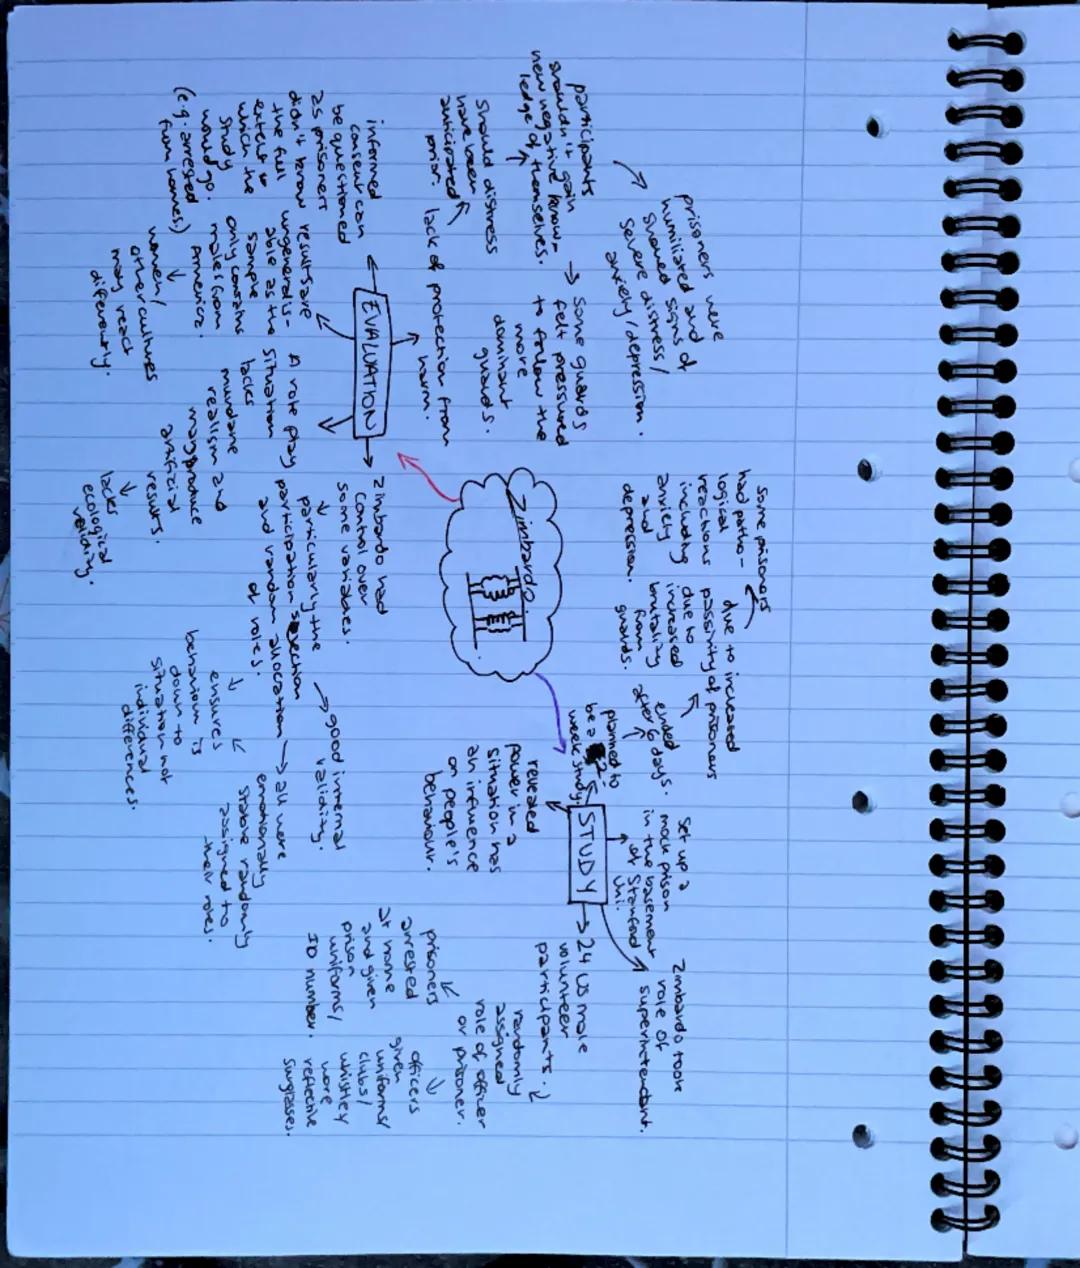 Zimbardo
EVALUATION
lack of protection from
harm.
Should distress
have been
anticipated
prior.
participants
shouldn't gain
new negative know-
ledge of themselves.
prisoners were
humiliated and
showed signs of
severe distress/
anxiety/depression.
Some guards
felt pressured
to follow the
more
dominant
guards.
informed
consent can
be questioned
as prisoners
didn't know
the full
extent to
which the
study
would go.
(e.g. arrested
from homes)
results are
ungeneralis-
able as the
sample
only contains
males from
America.
women/
other cultures
may react
differently.
A role play
situation
lacks
mundane
realism and
may produce
artificial
results.
lacks
ecological
validity.
Zimbardo had
control over
some variables.
particularly the
participation selection
and random allocation
of roles.
good internal
validity.
all were
emotionally
stable randomly
assigned to
their roles.
ensures
behaviour is
down to
situation not
individual
differences.
STUDY
planned to
be a 2-
week study.
ended
after 6 days.
due to increased
passivity of prisoners
due to
increased
brutality
from
guards.
some prisoners
had patho-
logical
reactions
including
anxiety
and
depression.
Set up a
mock prison
in the basement
of Stanford
Uni.
Zimbardo took
role of
superintendant.
24 US male
volunteer
participants.
randomly
assigned
role of officer
or prisoner.
prisoners
arrested
at home
and given
prison
uniforms/
ID number.
officers
given
uniforms/
clubs/
whistley
wore
reflective
sunglasses.
revealed
power in a
situation has
an influence
on people's
behaviour.